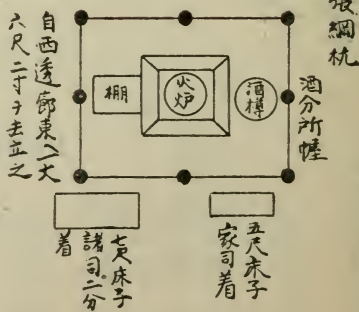 張綱杭
酒分所幄
酒樽
火炉
棚
自西透廊東へ一丈
六尺二寸ヲ去立之
五尺床子
家司着
七尺床子
諸司二分
着